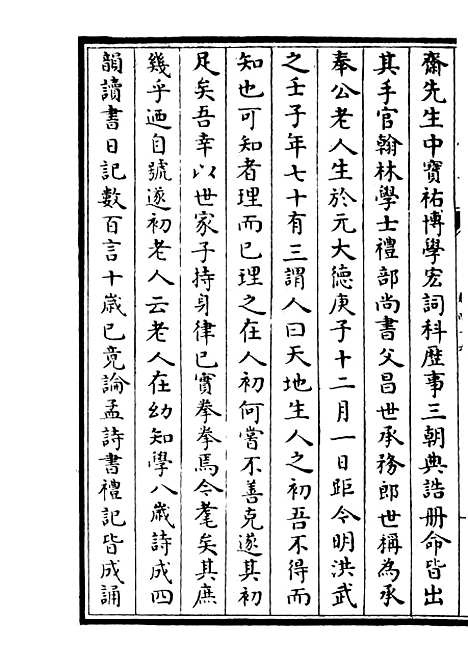 齋先生中寶祐博學宏詞科歷事三朝典誥册命皆出
其手官翰林學士禮部尚書父昌世承務郎世稱為承
奉公老人生於元大德庚子十二月一日距今明洪武
之壬子年七十有三謂人曰天地生人之初吾不得而
知也可知者理而已理之在人初何嘗不善克遂其初
足矣吾幸以世家子持身律已實拳拳焉今耄矣其庶
幾乎迺自號遂初老人云老人在幼知學八歲詩成四
韻讀書日記數百言十歲已竟論孟詩書禮記皆成誦